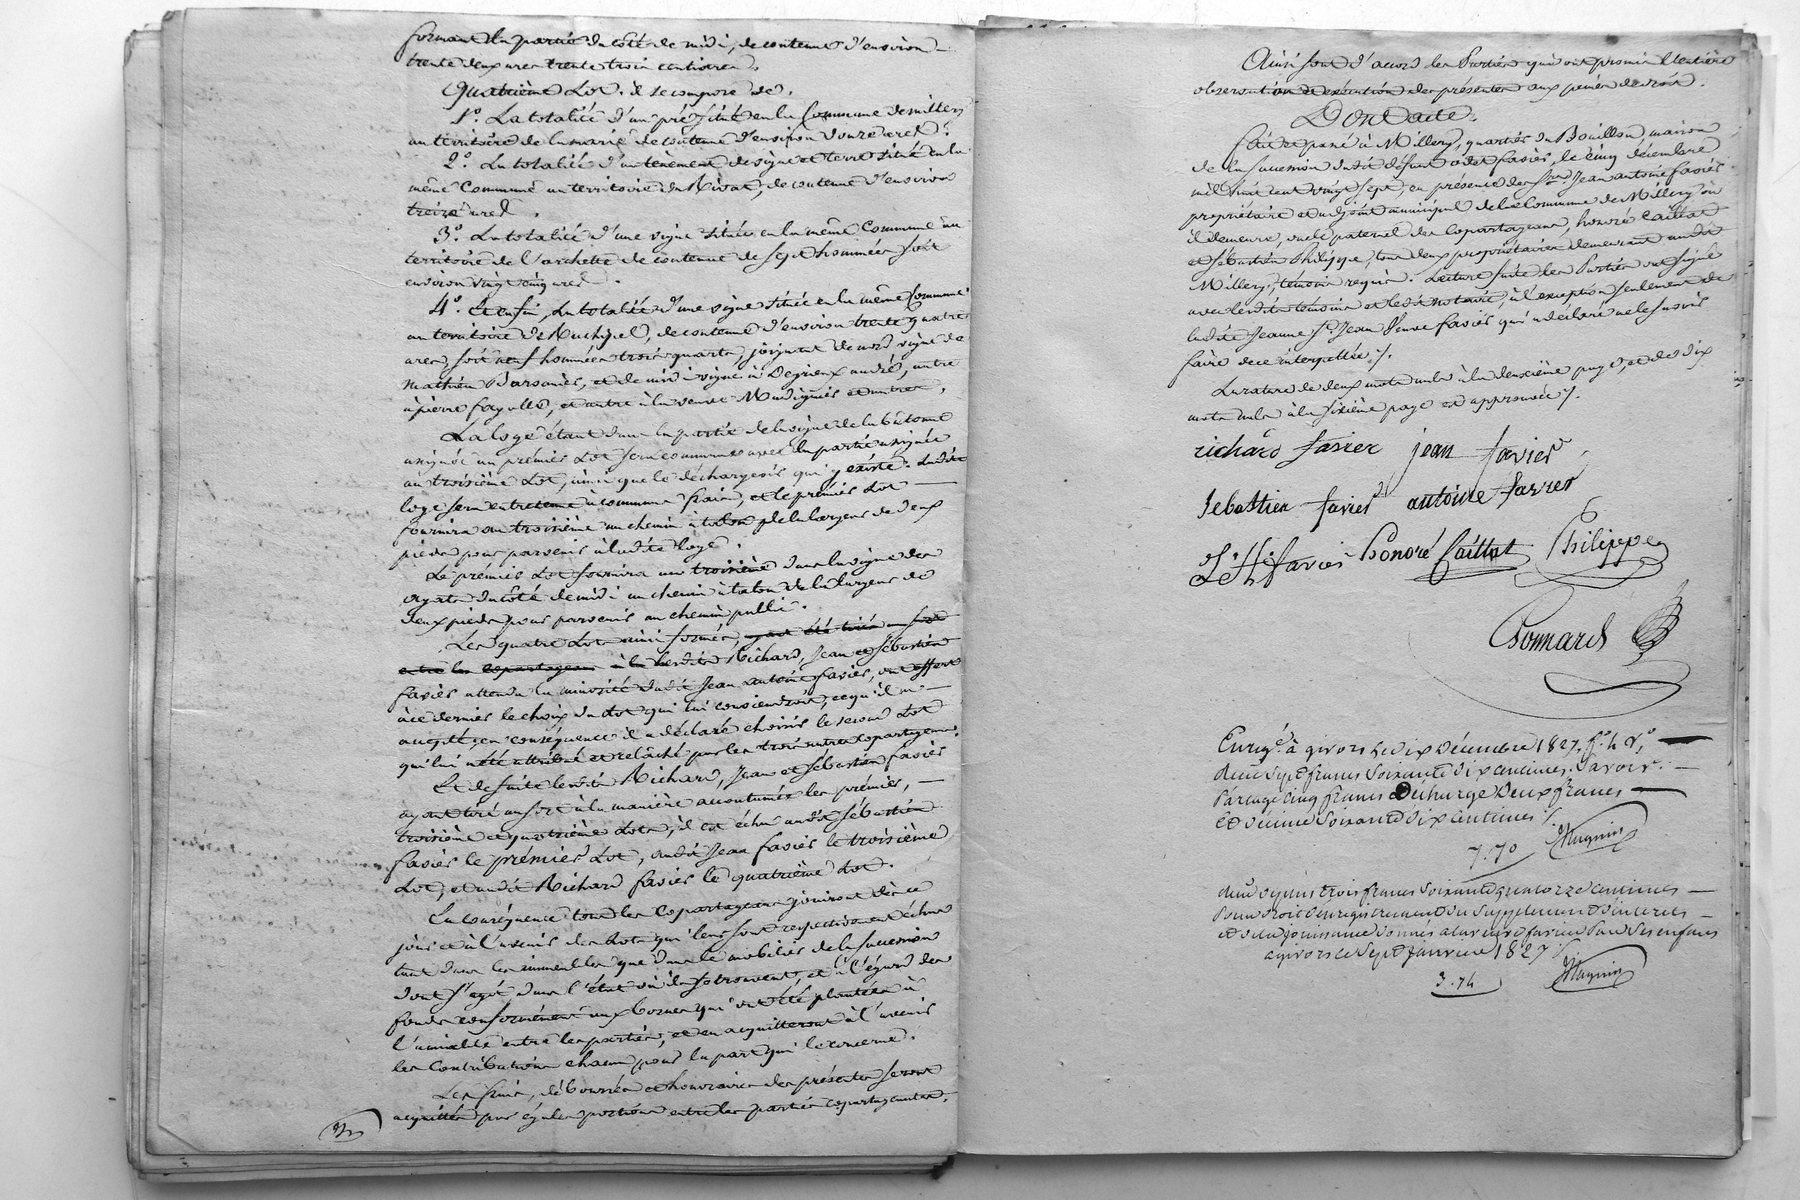 formant la partie du côté de midi, de contenue d'environ
trente deux ares trente trois centiares.
Quatrième Lot. il se compose de.
1º. La totalité d'un pré situé en la Commune de millery
au territoire de la marie de contenue d'environ douze ares.
2º. La totalité d'un tènement de vigne et terre situé en la
même Commune au territoire du Rivat, de contenue d'environ
treize ares.
3º. La totalité d'une vigne située en la même Commune au
territoire de l'archette de contenue de sept hommées soit
environ vingt cinq ares.
4º. Et enfin, la totalité d'une vigne située en la même Commune
au territoire de Ruchipel, de contenue d'environ trente quatre
ares, soit neuf hommées trois quarts, joignant de nord vigne de
Mathieu Barsaniès, et de midi vigne à Degrieux andré, autre
à pierre fayolle, et autre à la veuve Madignier et autres,
La loge étant dans la partie de la vigne de la bûtonne
assignée au prémier Lot sera commune avec la partie assignée
au troisième Lot, ainsi que le déchargeoir qui y existe. Ladite
loge sera entretenue à communs frais, et le prémier Lot
fournira au troisième un chemin à talon de la largeur de deux
pieds pour parvenir à ladite loge.
Le prémier Lot fournira au troisième dans la vigne des
ayats du côté de midi un chemin à talon de la largeur de
deux pieds pour parvenir au chemin public.
Les quatre Lots ainsi formés, ayant été tirés au sort
entre les copartageans à la lesdits Richard, Jean et Sébastien
favier attendu la minorité dudit Jean antoine favier, ont offert
à ce dernier le choix du Lot qui lui conviendroit, ce qu'il a
accepté, en conséquence il a déclaré choisir le second Lot
qui lui a été attribué et relâché par les trois autres copartageans.
Et de suite lesdits Richard, Jean et Sébastien favier
ayant tiré au sort à la manière accoutumée les prémier,
troisième et quatrième Lots, il est échu audit Sébastien
favier le prémier Lot, audit Jean favier le troisième
Lot, et audit Richard favier le quatrième Lot.
En conséquence tous les Copartageans jouiront dès ce
jour et à l'avenir des Lots qui leur sont respectivement échus
tant dans les immeubles que dans le mobilier de la succession
dont s'agit, dans l'état où ils se trouvent, et à l'égard des
fonds conformément aux bornes qui ont été plantées à
l'amiable entre les parties, et en acquitteront à l'avenir
les Contributions chacun pour la part qui le concerne.
Les frais, déboursés et honoraires des présentes seront
acquittés par égales portions entre les parties copartageantes.
Ainsi sont d'accord les Parties qui ont promis l'entière
observation et exécution des présentes aux peines de droit.
Dont acte.
fait et passé à Millery, quartier du Bouillon, maison
de la succession dudit défunt odet favier, le cinq décembre
mil huit cent vingt sept, en présence des Srs. Jean antoine favier
propriétaire et adjoint municipal de la Commune de Millery où
il demeure, oncle paternel des Copartageans, honoré Caillat
et Sébastien Philippe, tous deux propriétaires demeurant audit
Millery, témoins requis. Lecture faite les Parties ont signé
avec lesdits témoins et ledit notaire, à l'exception seulement de
ladite Jeanne St. Jean Veuve favier qui a déclaré ne le savoir
faire de ce interpellée ;/.
La rature de deux mots nuls à la deuxième page, et de dix
mots nuls à la sixième page est approuvée ;/.
richard favier jean favier
Sebastien favier antoine favier
J. A. favier honoré Caillat Philippe
Bonnard
Enrgé. à givors le dix Décembre 1827, fº. 42 Vº.
Reçu sept francs soixante dix centimes. Savoir :
Partage cinq francs Décharge Deux francs
Et décime soixante dix centimes /.
7.70 Magnin
Reçu depuis trois francs soixante quatorze centimes
Pour droit d'enregistrement du supplément d'intérêts
et de la jouissance donnés à la veuve favier par ses enfans
à givors le sept Janvier 1827 /.
3.74 Magnin